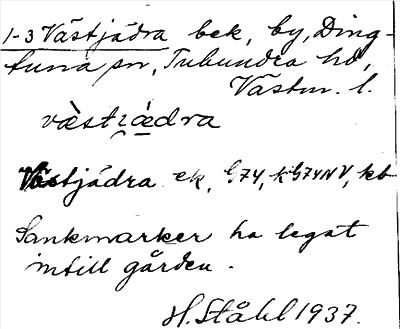 1-3 Västjädra bek, by, Ding-
tuna sn, Tuhundra hd,
Västm. l.
vàstjädra
Västjädra ek, G74, kG74NV, kb
Sankmarker ha legat
intill gården.
H. Ståhl 1937.